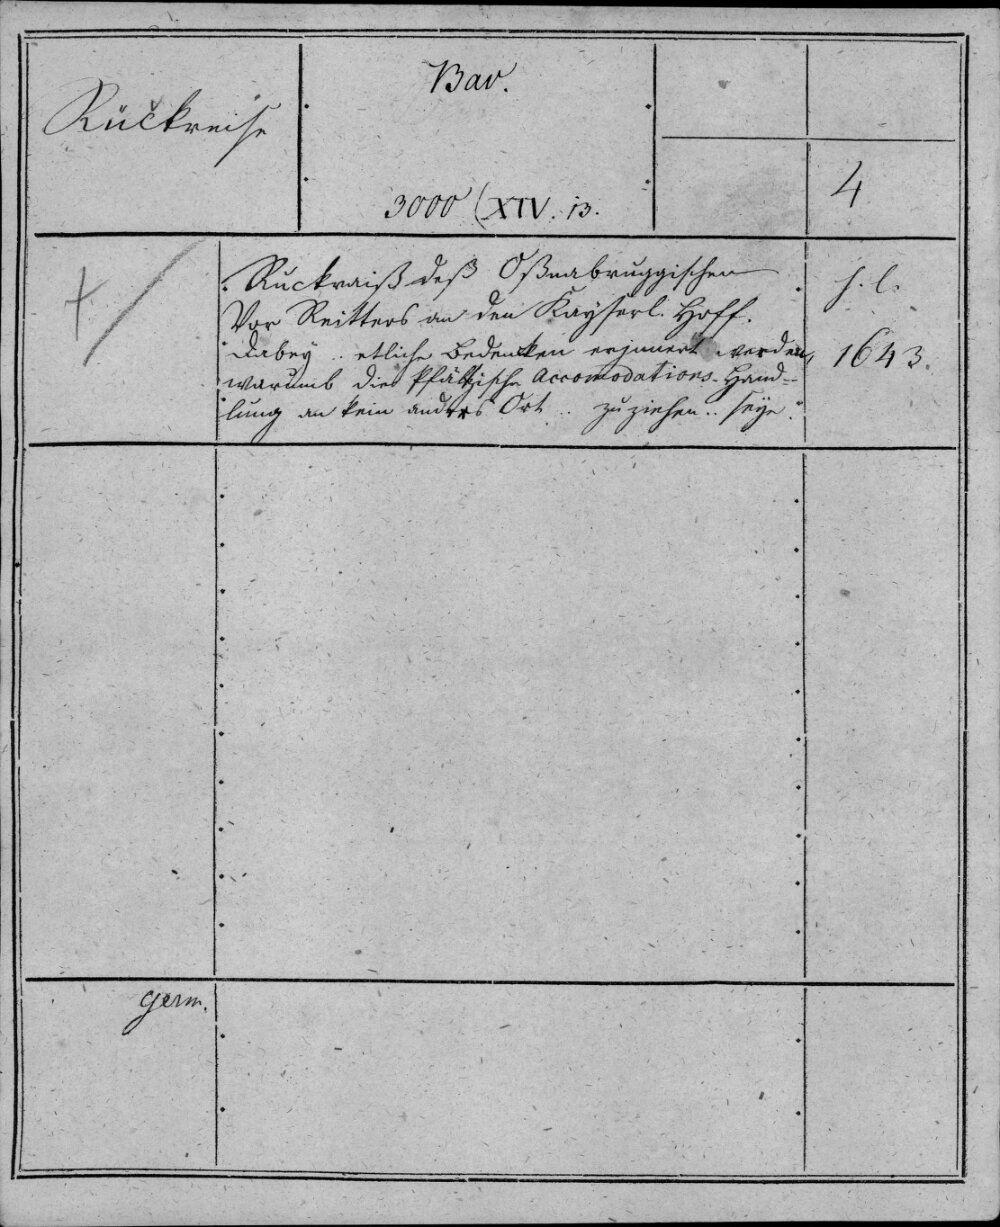 Rückreise
Bav.
3000 (XIV. 13.
4
+
Ruckraiß deß Oßnabruggischen
Vor Reitters an den Kayserl. Hoff.
Dabey .. etliche Bedencken erjnnert werden,
warumb die Pfältzische Accomodations-Hand-
lung an kein anders Ort .. zuziehen .. seye.
s. l.
1643.
germ.